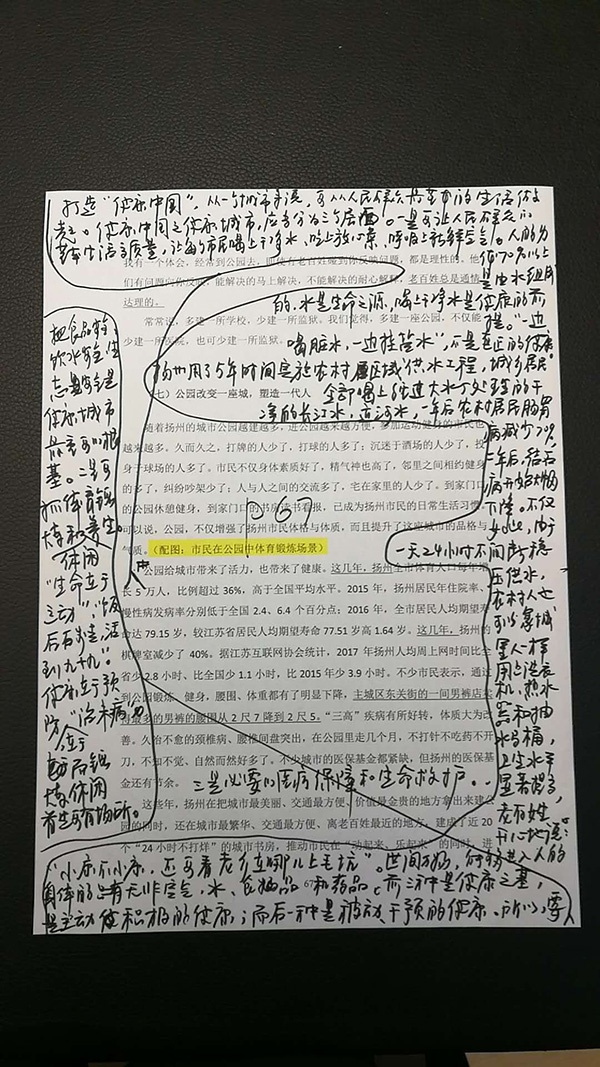 打造“健康中国”，从一个城市来说，要从人民群众最基本的生活做
起。健康中国之健康城市，应当分为三个层面。一是要让人民群众的
基本生活高质量，让每个市民喝上干净水、吃上放心菜、呼吸上新鲜空气。人的身
体70%以上
是由水组成
的，水是生命之源，喝上干净水是健康的前
提。“一边
喝脏水，一边挂盐水”，不是真正的健康。
扬州用了5年时间实施农村区域供水工程，城乡居民
全部喝上经过大水厂处理的干
净的长江水，
一年后农村居民肠胃
病减少
年后，结石
病开始
下降。不仅
如此，由于
一天24小时不间断稳
压供水，
农村人也
可以象城
里人一样
用上洗衣
机、热水
器和抽
水马桶，
卫生水平
显著提高，
老百姓
开心地说：
“小康不小康，还要看老百姓哪儿上毛坑”。世间万物，
进入人的
身体的无非空气，水，食品和药品，前三种是健康之基，
是主动健积极的健康；而后一种是被动、干预的健康。所以，要
把食品和
饮水安全、生
态安全是
健康城市
最重要的根
基。二是要
抓体育锻
炼和养生
休闲
“生命在于
运动”；“饭
后百步走，活
到九十九”。
健康在于预
防，“治未病”
市民锻
炼休闲
养生要有场所。
三是必要的医疗保障和生命救护。
P67
我有一个体会，经常到公园去，即使有老百姓碰到你反映问题，都是理性的，他
们有问题向你反映，能解决的马上解决，不能解决的耐心解释，老百姓总是通情
达理的。
常常说，多建一所学校，少建一所监狱。我们觉得，多建一座公园，不仅能
少建一所医院，也可少建一所监狱。
（七）公园改变一座城，塑造一代人
随着扬州的城市公园越建越多，进公园越来越方便，参加运动健身的市民也
越来越多。久而久之，打牌的人少了，打球的人多了；沉迷于酒场的人少了，投
身于球场的人多了。市民不仅身体素质好了，精气神也高了，邻里之间相约健身
的多了，纠纷吵架少了；人与人之间的交流多了，宅在家里的人少了。到家门口
的公园休憩健身，到家门口的书房读书看报，已成为扬州市民的日常生活习惯。
可以说，公园，不仅增强了扬州市民体格与体质，而且提升了这座城市的品格与
气质。（配图：市民在公园中体育锻炼场景）
公园给城市带来了活力，也带来了健康。这几年，扬州全市体育人口每年增
长5万人，比例超过36%，高于全国平均水平。2015年，扬州居民年住院率、
慢性病发病率分别低于全国2.4、6.4个百分点；2016年，全市居民人均期望寿
命达79.15岁，较江苏省居民人均期望寿命77.51岁高1.64岁。这几年，扬州的
棋牌室减少了40%。据江苏互联网协会统计，2017年扬州人均周上网时间比全
省少2.8小时、比全国少1.1小时，比2015年少3.9小时。不少市民表示，通过
到公园锻炼、健身，腰围、体重都有了明显下降，主城区东关街的一间男裤店卖
得最多的男裤的腰围从2尺7降到2尺5。“三高”疾病有所好转，体质大为改
善。久治不愈的颈椎病、腰椎间盘突出，在公园里走几个月，不打针不吃药不开
刀，不知不觉、自然而然好多了。不少城市的医保基金都紧缺，但扬州的医保基
金还有节余。
这些年，扬州在把城市最美丽、交通最方便、价值最金贵的地方拿出来建公
园的同时，还在城市最繁华、交通最方便、离老百姓最近的地方，建成了近20
个“24小时不打烊”的城市书房，推动市民在“动起来、乐起来”的同时，进